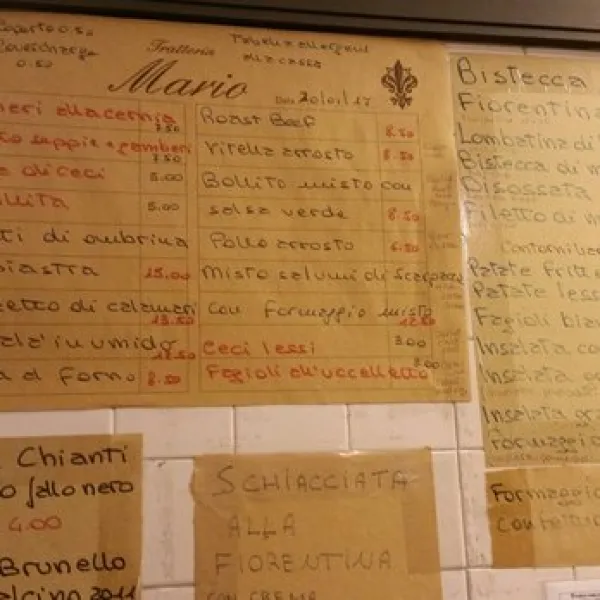 Coperto 0.50
Covercharge
0.50
Trattoria
Tabella allergeni
alla cassa
Mario
Data 20/01/17
neri alla cernia
7.50
co seppie e gamberi
7.50
di ceci
5.00
llita
5.00
ti di ombrina
piastra
15.00
zetto di calamari
13.50
ala' in umido
a al forno
8.50
Roast Beef
8.50
Vitella arrosto
8.50
Bollito misto con
salsa verde
8.50
Pollo arrosto
6.50
Misto salumi di Scarpaccia
con formaggio misto
12.50
Ceci lessi
3.00
Fagioli all'uccelletto
3.00
Bistecca
Fiorentina
Lombatina di
Bistecca di m
Disossata
Filetto di m
Contorni
Patate fritte
Patate less
Fagioli bia
Insalata co
Insalata
Insalata gr
Formaggio
Chianti
o gallo nero
4.00
Brunello
alcino 2011
SCHIACCIATA
ALLA
FIORENTINA
CON CREMA
Formaggio
Confettur